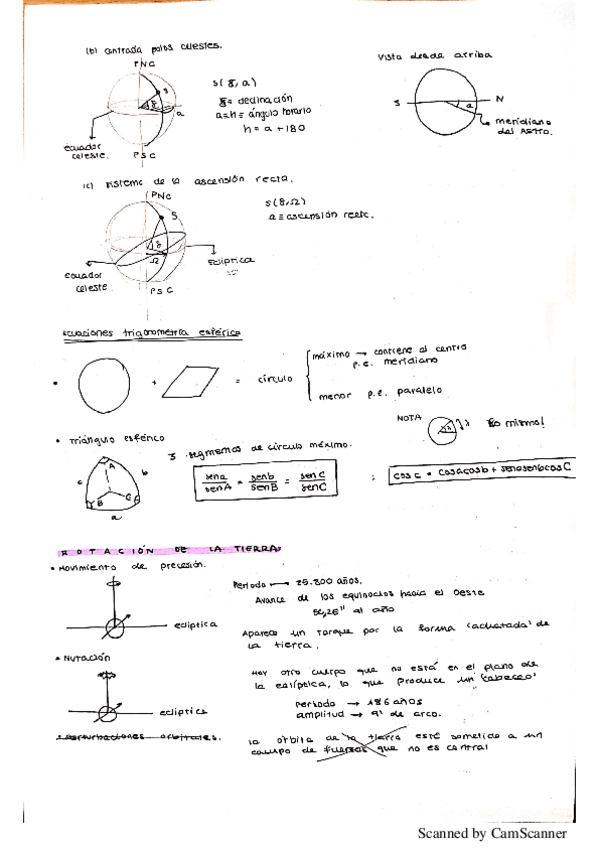 (b) centrada polos celestes.
PNC
S
δ
a
S(δ, a)
δ = declinación
a=h= ángulo horario
h = a + 180
Ecuador
celeste.
PSC
Vista desde arriba
S
N
a
meridiano
del Astro.
(c) sistema de la ascensión recta.
PNC
S
δ
Ω
S(δ,Ω)
a = ascensión recta.
Ecuador
celeste
PSC
Eclíptica
Ecuaciones trigonometría esférica
+
= círculo
máximo → contiene al centro
p.e. meridiano
menor p.e. paralelo
NOTA
lo mismo!
• Triángulo esférico
3 segmentos de círculo máximo.
A
b
c
B
C
a
sena/senA = senb/senB = senc/senC
; cosc = cosacosb + senasenbcosC
ROTACIÓN DE LA TIERRA
• Movimiento de precesión.
Periodo → 25.800 años.
Avance de los equinocios hacia el Oeste
50,26" al año
eclíptica
Aparece un torque por la forma 'achatada' de
la tierra.
• Nutación
Hay otro cuerpo que no está en el plano de
la eclíptica, lo que produce un 'cabeceo'
Periodo → 18,6 años
amplitud → 9" de arco.
eclíptica
• Perturbaciones orbitales.
la órbita de la tierra está sometida a un
campo de fuerzas que no es central
Scanned by CamScanner